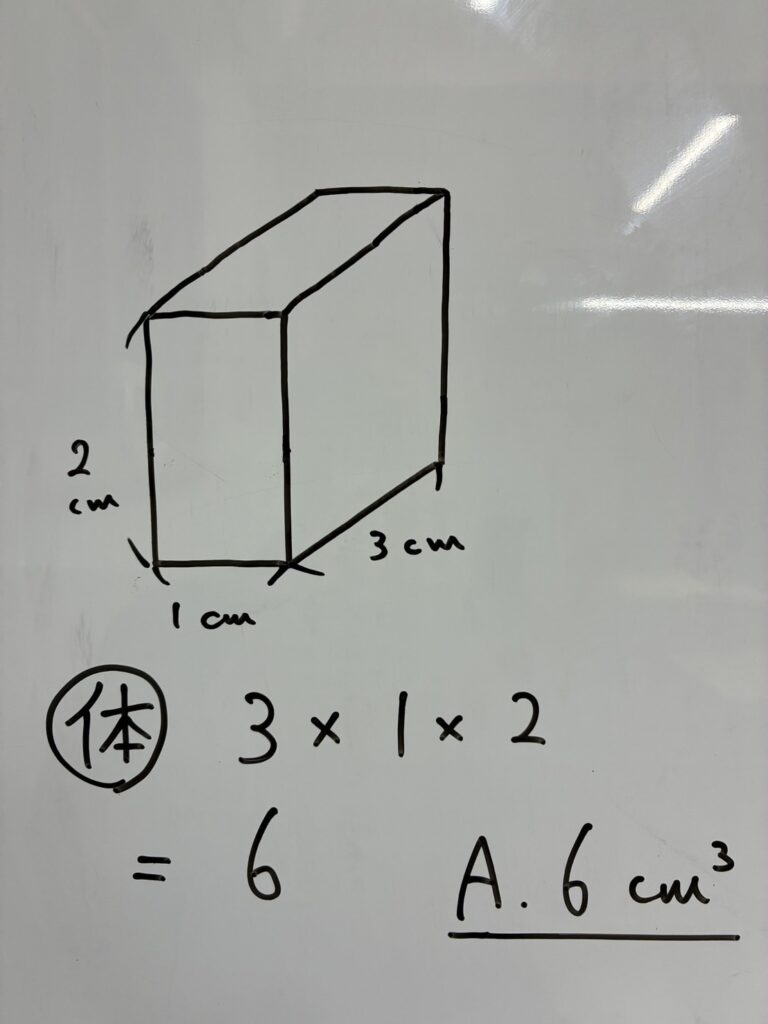 2
cm
3 cm
1 cm
体 3 × 1 × 2
= 6
A. 6 cm³